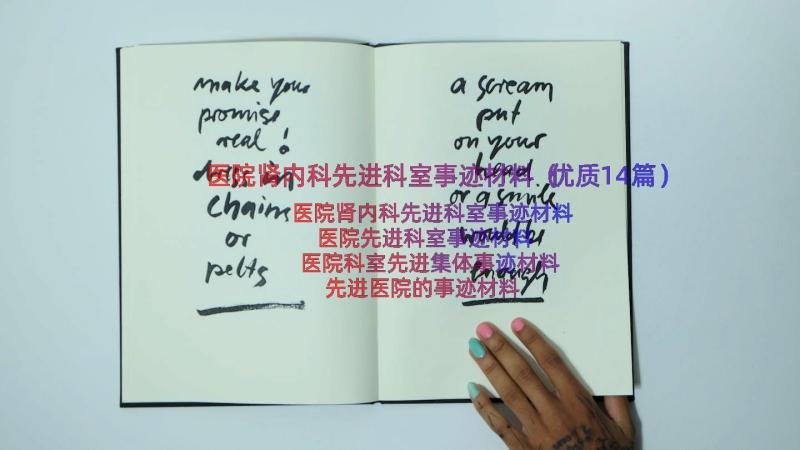 make your
promise
real!
dress in
chains
or
pelts
a scream
put
on your
head
or a smile
would be
enough
医院肾内科先进科室事迹材料（优质14篇）
医院肾内科先进科室事迹材料
医院先进科室事迹材料
医院科室先进集体事迹材料
先进医院的事迹材料